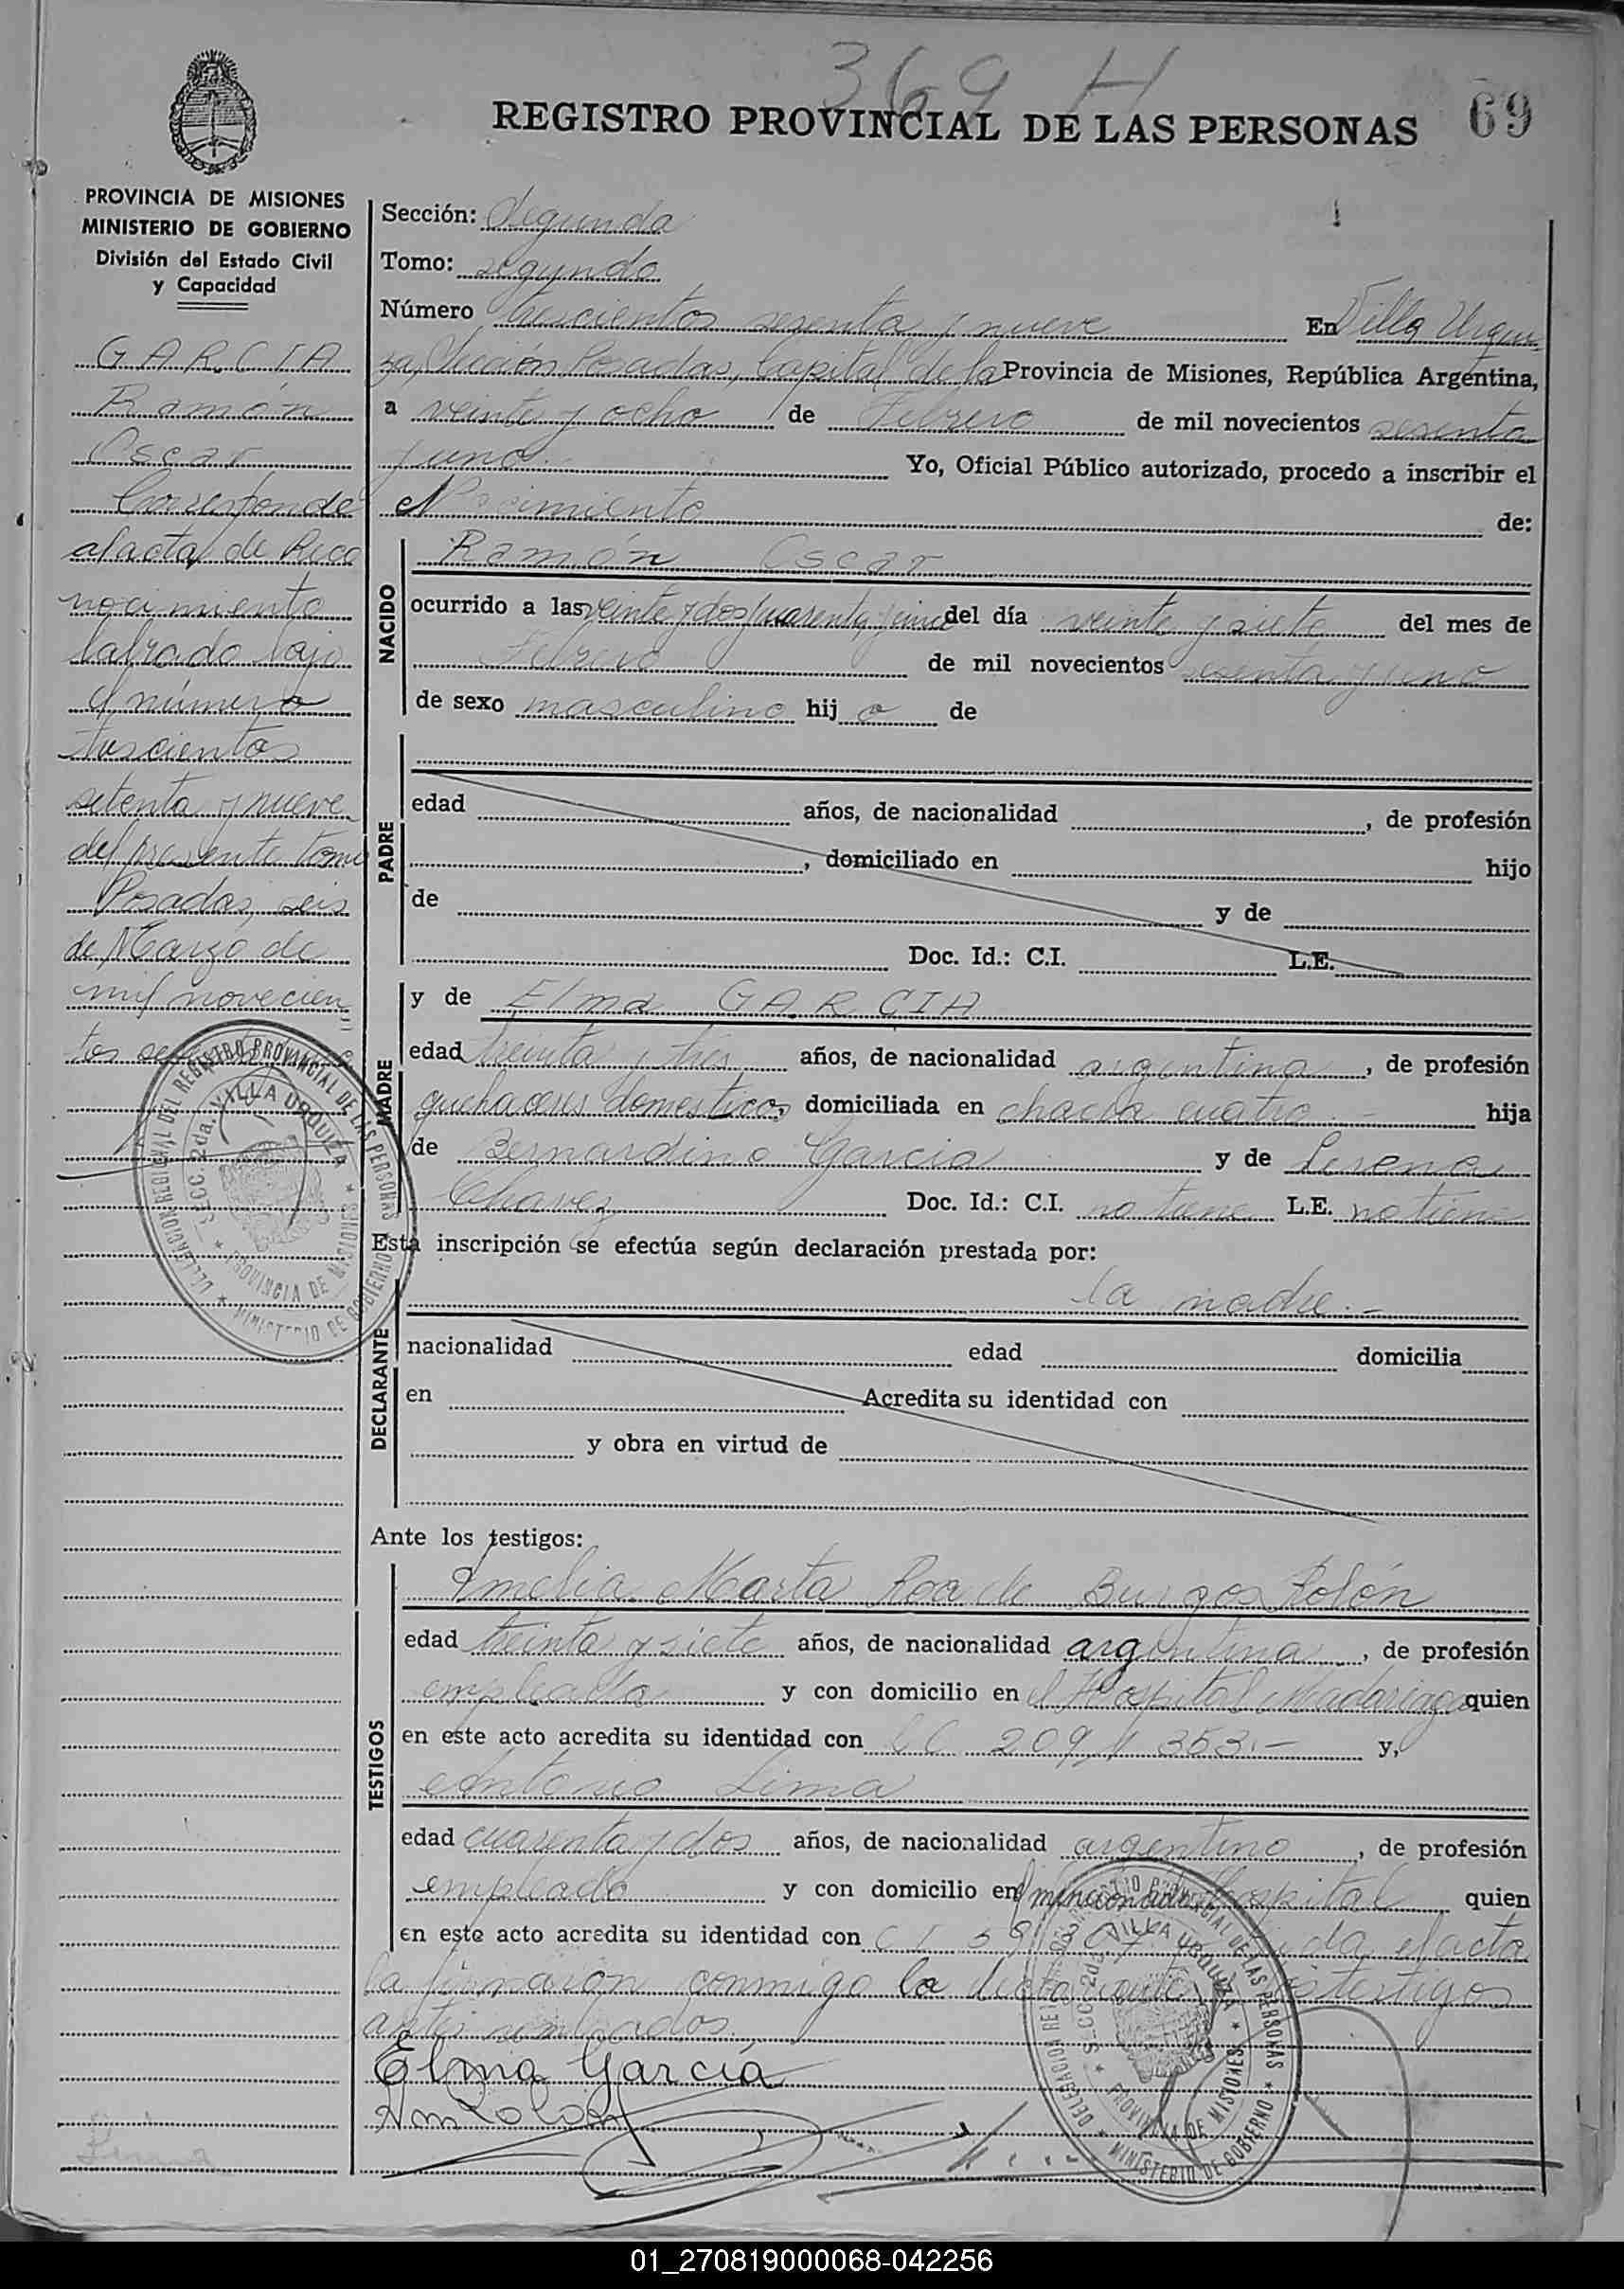 369 H
REGISTRO PROVINCIAL DE LAS PERSONAS 69
PROVINCIA DE MISIONES
MINISTERIO DE GOBIERNO
División del Estado Civil
y Capacidad
GARCIA
Ramón
Oscar
Corresponde
al acta de Reco
nocimiento
labrado bajo
el número
trescientos
setenta y nueve
del presente tomo
Posadas, seis
de Marzo de
mil novecien
tos
Sección: Segunda
Tomo: segundo
Número trescientos sesenta y nueve En Villa Urqui
za, Sección Posadas, Capital de la Provincia de Misiones, República Argentina,
a veinte y ocho de Febrero de mil novecientos sesenta
y uno. Yo, Oficial Público autorizado, procedo a inscribir el
Nacimiento de:
NACIDO
Ramón Oscar
ocurrido a las veinte y dos y cuarenta y cinco del día veinte y siete del mes de
Febrero de mil novecientos sesenta y uno
de sexo masculino hijo de
PADRE
edad años, de nacionalidad , de profesión
, domiciliado en hijo
de y de
Doc. Id.: C.I. L.E.
MADRE
y de Elma GARCIA
edad treinta y tres años, de nacionalidad argentina, de profesión
quehaceres domesticos, domiciliada en chacra cuatro.- hija
de Bernardino Garcia y de
Chavez Doc. Id.: C.I. no tiene L.E. no tiene
Esta inscripción se efectúa según declaración prestada por:
la madre.-
DECLARANTE
nacionalidad edad domicilia
en Acredita su identidad con
y obra en virtud de
Ante los testigos:
TESTIGOS
Amelia Marta Roa de Burgos Rolón
edad treinta y siete años, de nacionalidad argentina, de profesión
empleada y con domicilio en el Hospital Madariaga quien
en este acto acredita su identidad con y,
Antonio Lima
edad cuarenta y dos años, de nacionalidad argentino, de profesión
empleado y con domicilio en el mencionado Hospital quien
en este acto acredita su identidad con C I el acta
la firmaron conmigo la declarante y testigos
antes nombrados.
Elma García
DELEGACION REGIONAL DEL REGISTRO PROVINCIAL DE LAS PERSONAS
MINISTERIO DE GOBIERNO
SECC. 2da. VILLA URQUIZA
PROVINCIA DE MISIONES
DELEGACION REGIONAL DEL REGISTRO PROVINCIAL DE LAS PERSONAS
MINISTERIO DE GOBIERNO
SECC. 2da. VILLA URQUIZA
PROVINCIA DE MISIONES
01_270819000068-042256